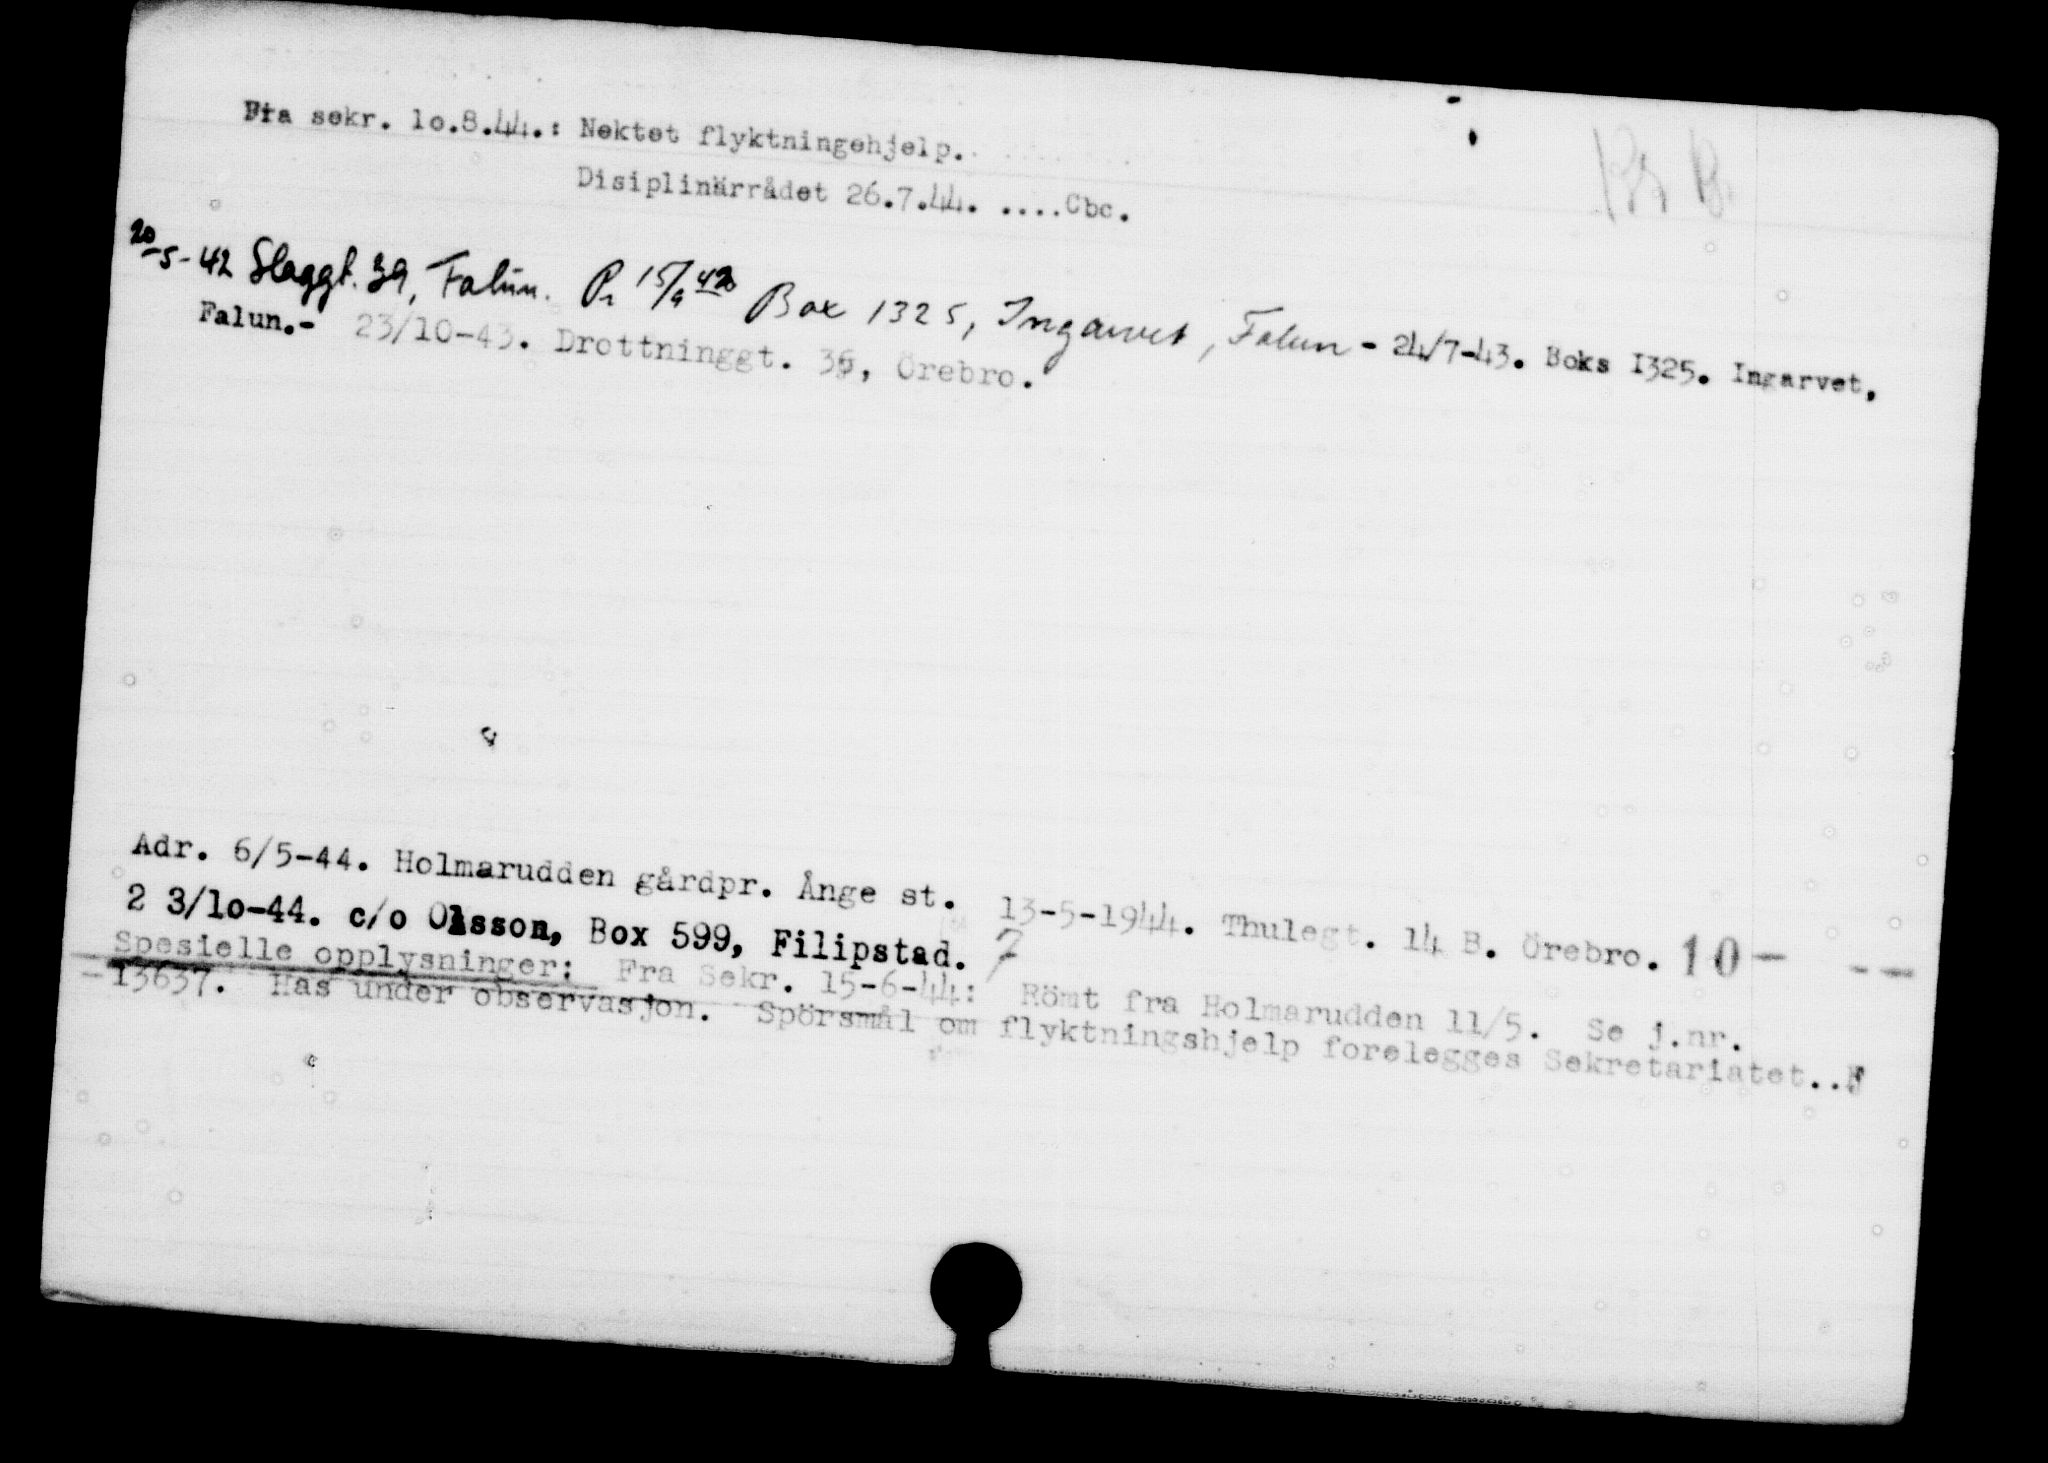 Fra sekr. 1o.8.44.: Nektet flyktningehjelp.
Disiplinärrådet 26.7.44. ....Cbc.
20-5-42 Slaggt. 39, Falun. Pr 15/9 42 Box 1325, Ingarvet, Falun - 24/7-43. Boks I325. Ingarvet,
Falun.- 23/10-43. Drottninggt. 36, Örebro.
Adr. 6/5-44. Holmarudden gårdpr. Ånge st. 13-5-1944. Thulegt. 14 B. Örebro. 10 - --
2 3/1o-44. c/o Olsson, Box 599, Filipstad. 7
Spesielle opplysninger: Fra Sekr. 15-6-44: Römt fra Holmarudden 11/5. Se j.nr.
-13637. Has under observasjon. Spörsmål om flyktningshjelp forelegges Sekretariatet..